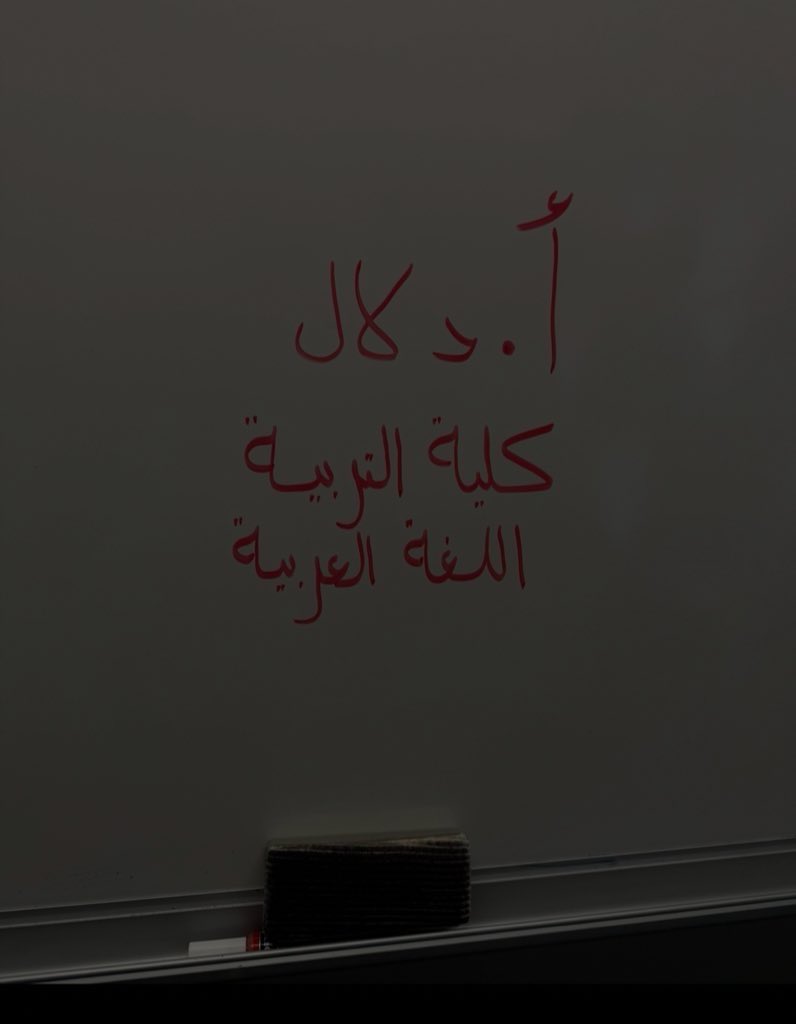 أ. دلال
كلية التربية
اللغة العربية